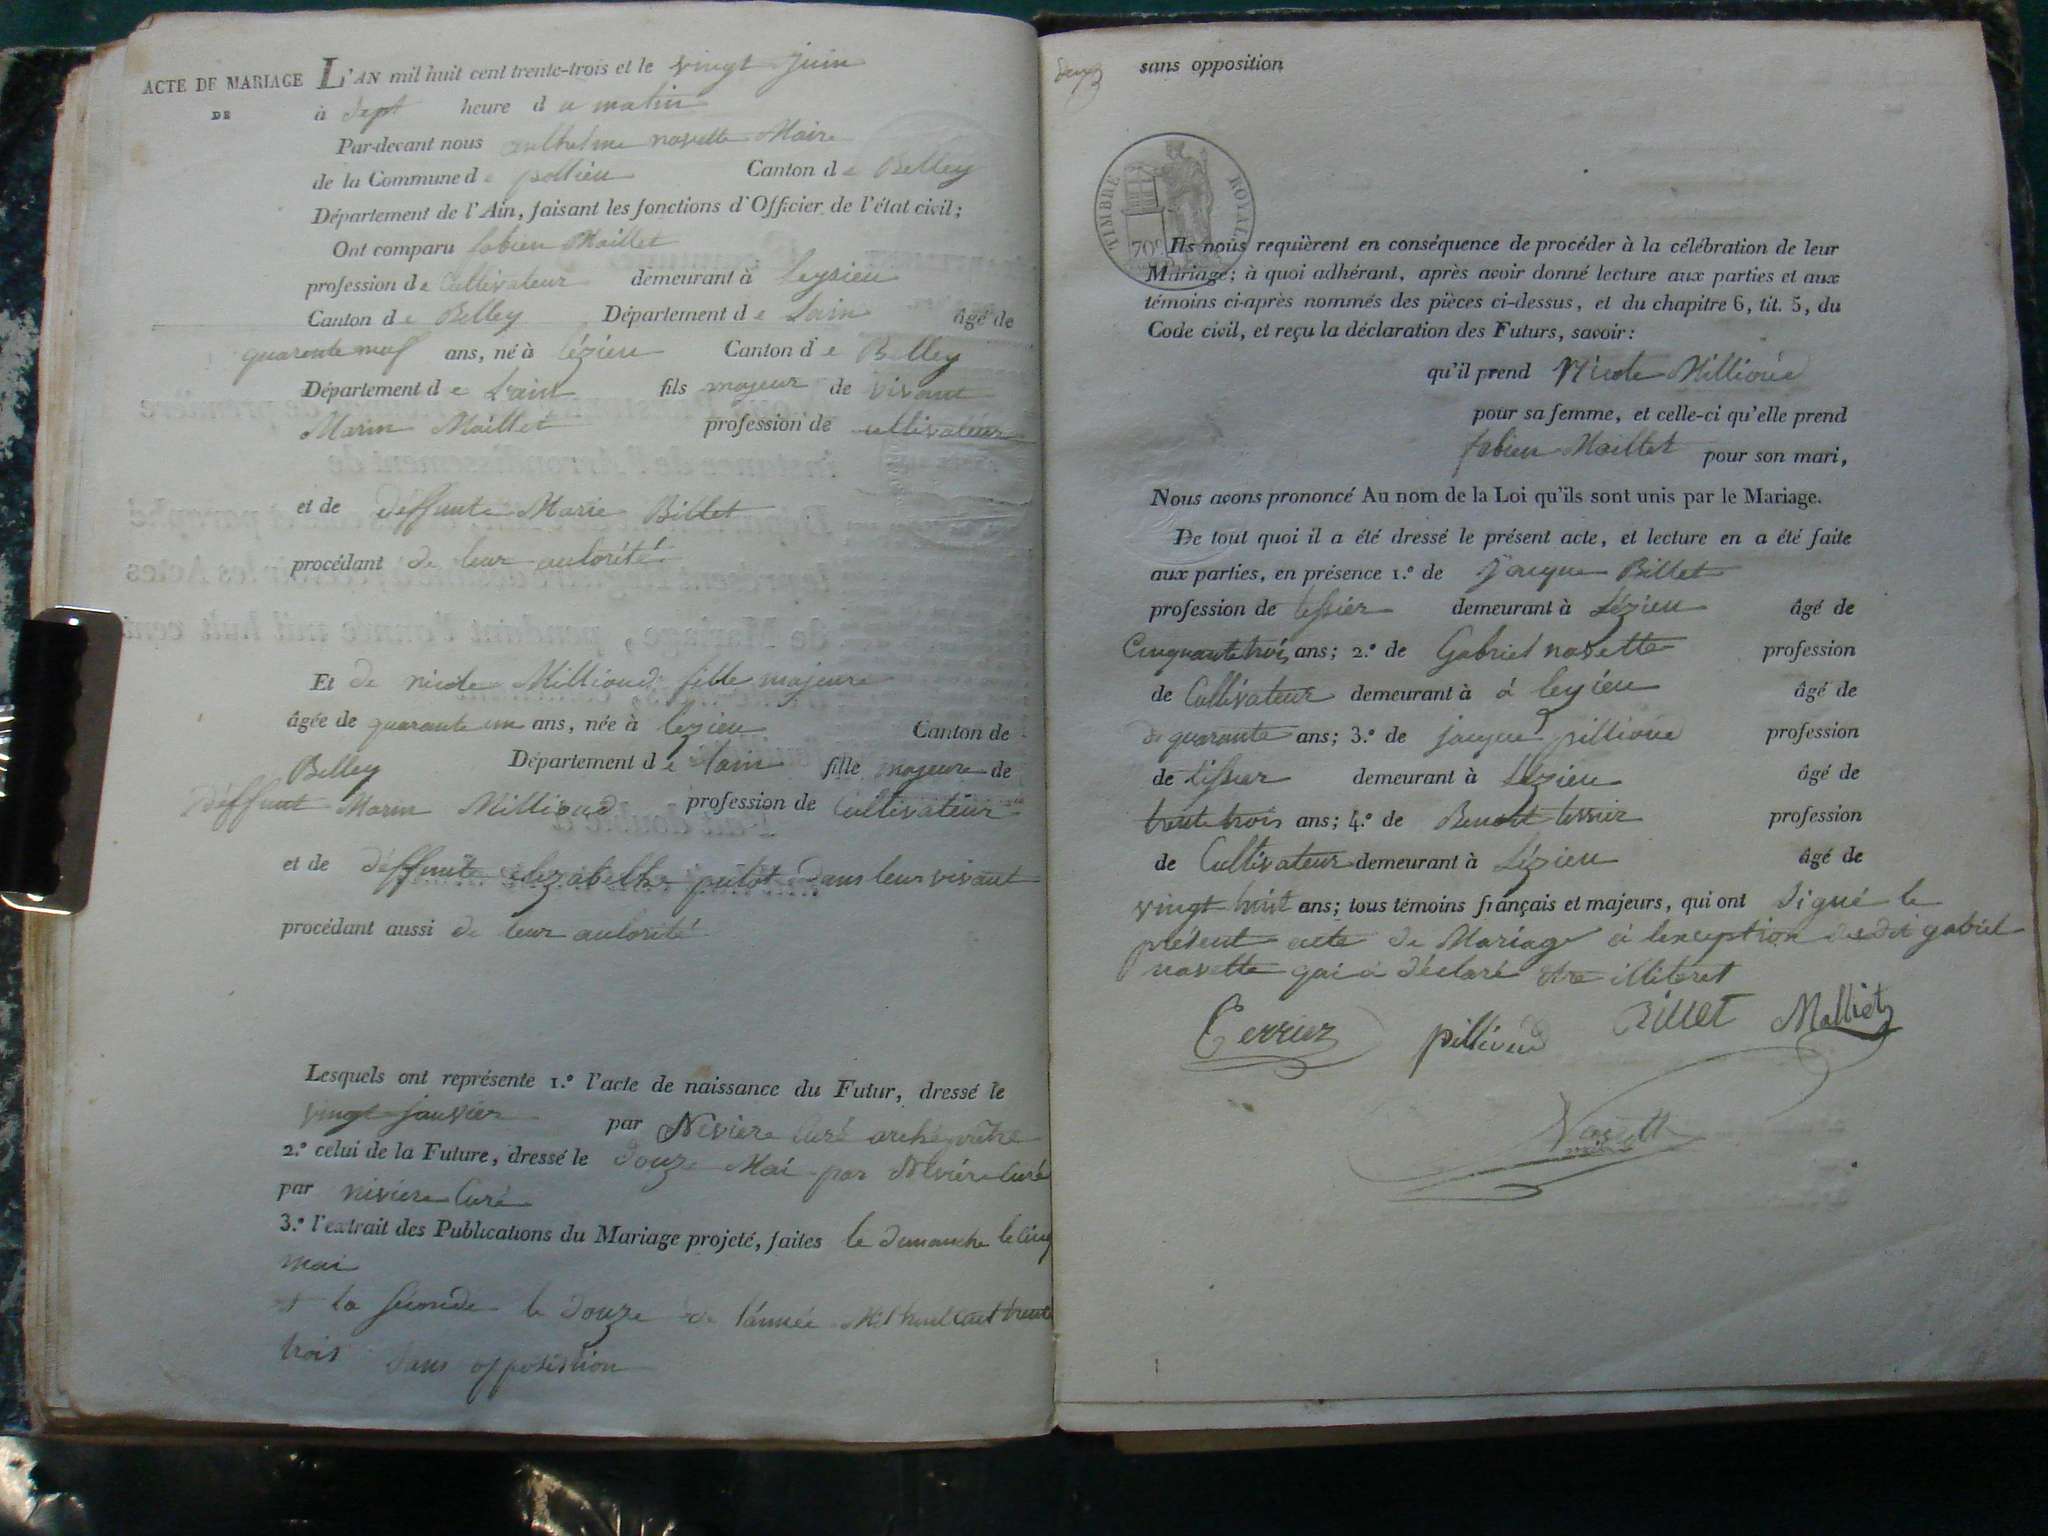 ACTE DE MARIAGE
DE
L'AN mil huit cent trente-trois et le vingt juin
à sept heure du matin
Par-devant nous anthelme navette Maire
de la Commune de pollieu Canton de Belley
Département de l'Ain, faisant les fonctions d'Officier de l'état civil;
Ont comparu fabien Maillet
profession de Cultivateur demeurant à Leysieu
Canton de Belley Département de Lain âgé de
quarente neuf ans, né à lézieu Canton de Belley
Département de Lain fils majeur de vivant
Marin Maillet profession de cultivateur
et de deffunte Marie Billet
procédant de leur autorité
Et de nicole Millioud fille majeure
âgée de quarante un ans, née à lézieu Canton de
Belley Département de lain fille majeure de
déffunt Marin Millioud profession de Cultivateur
et de déffunte elizabethe putot dans leur vivant
procédant aussi de leur autorité
Lesquels ont représente 1.º l'acte de naissance du Futur, dressé le
vingt janvier par Niviere Curé archéprêtre
2.º celui de la Future, dressé le douze Mai par Niviére Curé
par niviere Curé
3.º l'extrait des Publications du Mariage projeté, faites le dimanche le cinq
mai
et la seconde le douze de l'année Mil huit cent trente
trois sans opposition
sans opposition
TIMBRE ROYAL
70c
Ils nous requièrent en conséquence de procéder à la célébration de leur
Mariage; à quoi adhérant, après avoir donné lecture aux parties et aux
témoins ci-après nommés des pièces ci-dessus, et du chapitre 6, tit. 5, du
Code civil, et reçu la déclaration des Futurs, savoir:
qu'il prend Nicole Millioud
pour sa femme, et celle-ci qu'elle prend
fabien Maillet pour son mari,
Nous avons prononcé Au nom de la Loi qu'ils sont unis par le Mariage.
De tout quoi il a été dressé le présent acte, et lecture en a été faite
aux parties, en présence 1.º de jacque Billet
profession de tessier demeurant à Lézieu âgé de
Cinquante trois ans; 2.º de Gabriel navette profession
de Cultivateur demeurant à à leyzieu âgé de
de quarante ans; 3.º de jacque pillioud profession
de tissier demeurant à Lézieu âgé de
trente trois ans; 4.º de Benoit terrier profession
de Cultivateur demeurant à Lézieu âgé de
vingt huit ans; tous témoins français et majeurs, qui ont signé le
présent acte de Mariage à lexception dudit gabriel
navette qui à déclaré etre illiteret
Terrier pillioud BILLET Malliet
Navette